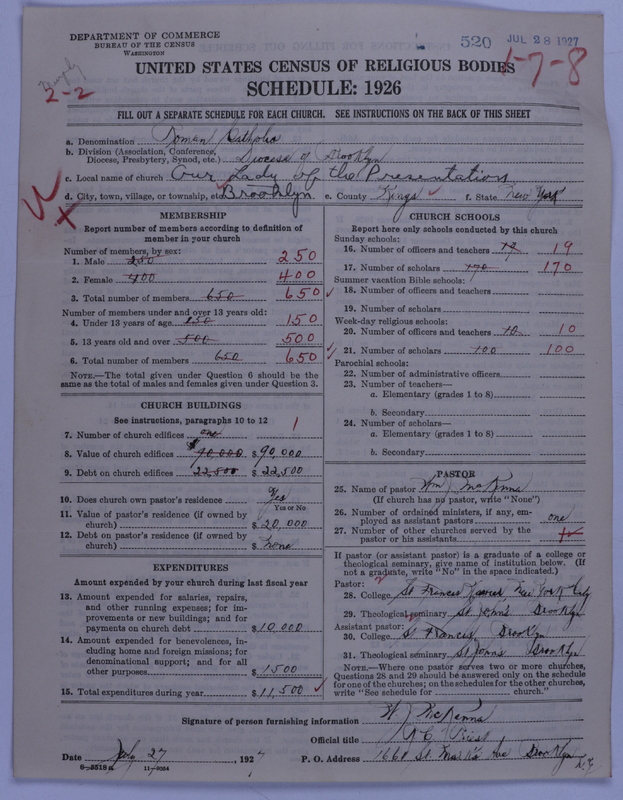 DEPARTMENT OF COMMERCE
BUREAU OF THE CENSUS
WASHINGTON
520 JUL 28 1927
1-7-8
2-2
UNITED STATES CENSUS OF RELIGIOUS BODIES
SCHEDULE: 1926
FILL OUT A SEPARATE SCHEDULE FOR EACH CHURCH. SEE INSTRUCTIONS ON THE BACK OF THIS SHEET
a. Denomination Roman Catholic
b. Division (Association, Conference,
Diocese, Presbytery, Synod, etc.) Diocese of Brooklyn
c. Local name of church Our Lady of the Presentation
d. City, town, village, or township, etc. Brooklyn e. County Kings f. State New York
MEMBERSHIP
Report number of members according to definition of
member in your church
Number of members, by sex:
1. Male 250 250
2. Female 400 400
3. Total number of members 650 650
Number of members under and over 13 years old:
4. Under 13 years of age 150 150
5. 13 years old and over 500 500
6. Total number of members 650 650
NOTE.—The total given under Question 6 should be
same as the total of males and females given under Question 3.
CHURCH BUILDINGS
See instructions, paragraphs 10 to 12
7. Number of church edifices one 1
8. Value of church edifices $90,000 $90,000
9. Debt on church edifices 22,500 $22,500
10. Does church own pastor's residence Yes
Yes or No
11. Value of pastor's residence (if owned by
church) $20,000
12. Debt on pastor's residence (if owned by
church) $None
EXPENDITURES
Amount expended by your church during last fiscal year
13. Amount expended for salaries, repairs,
and other running expenses; for im-
provements or new buildings; and for
payments on church debt $10,000
14. Amount expended for benevolences, in-
cluding home and foreign missions; for
denominational support; and for all
other purposes $1500
15. Total expenditures during year $11,500
CHURCH SCHOOLS
Report here only schools conducted by this church
Sunday schools:
16. Number of officers and teachers 19
17. Number of scholars 170 170
Summer vacation Bible schools:
18. Number of officers and teachers
19. Number of scholars
Week-day religious schools:
20. Number of officers and teachers 10 10
21. Number of scholars 100 100
Parochial schools:
22. Number of administrative officers
23. Number of teachers—
a. Elementary (grades 1 to 8)
b. Secondary
24. Number of scholars—
a. Elementary (grades 1 to 8)
b. Secondary
PASTOR
25. Name of pastor Wm J McKenna
(If church has no pastor, write "None")
26. Number of ordained ministers, if any, em-
ployed as assistant pastors one
27. Number of other churches served by the
pastor or his assistants
If pastor (or assistant pastor) is a graduate of a college or
theological seminary, give name of institution below. (If
not a graduate, write "No" in the space indicated.)
Pastor: 2
28. College St Francis Xavier New York City
29. Theological seminary St John's Brooklyn
Assistant pastor:
30. College St Francis, Brooklyn
31. Theological seminary St Johns Brooklyn
NOTE.—Where one pastor serves two or more churches,
Questions 28 and 29 should be answered only on the schedule
for one of the churches; on the schedules for the other churches,
write "See schedule for church."
Signature of person furnishing information W J McKenna
Official title Priest
Date July 27, 1927 P. O. Address 1661 St Marks Ave Brooklyn N.Y.
8-5518a 11-9264